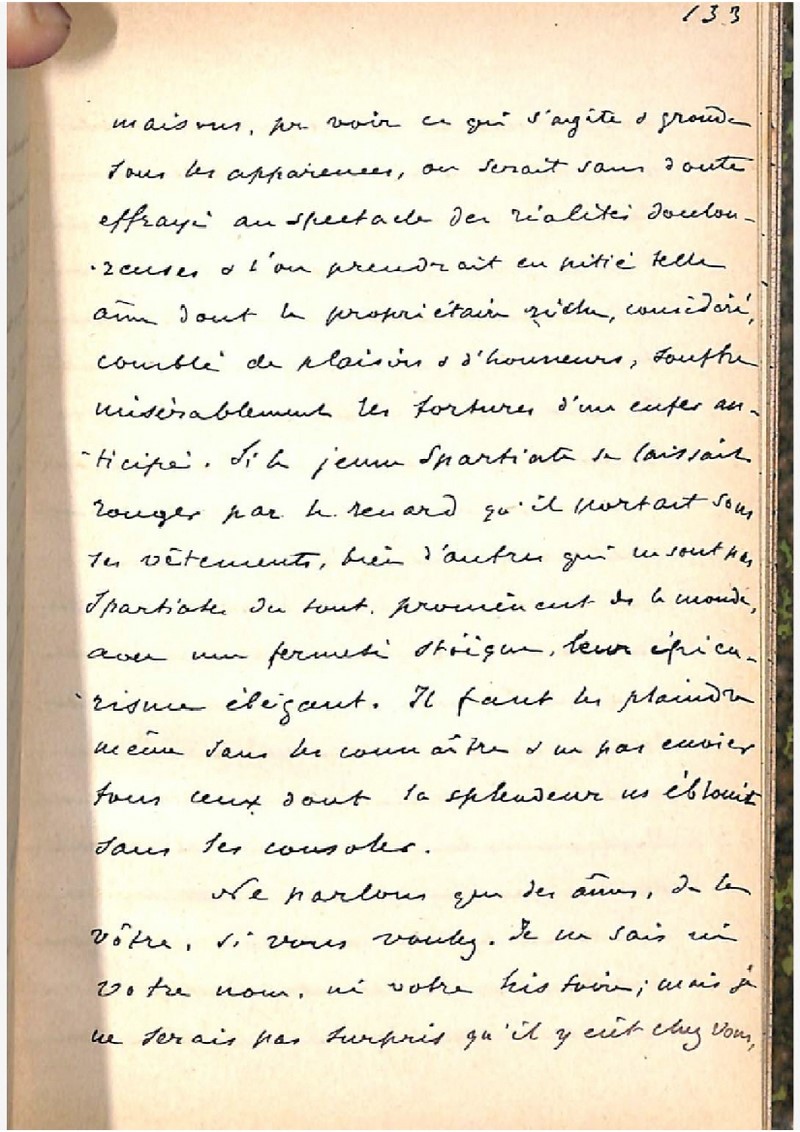 133
maisons, pr voir ce qui s'agite & gronde
sous les apparences, on serait sans doute
effrayé au spectacle des réalités doulou-
-reuses & l'on prendrait en pitié telle
âme dont le propriétaire riche, considéré,
comblé de plaisirs & d'honneurs, souffre
misérablement les tortures d'un enfer an-
-ticipé. Si le jeune Spartiate se laissait
ronger par le renard qu'il portait sous
ses vêtements, bien d'autres qui ne sont pas
Spartiates du tout, promènent ds le monde,
avec une fermeté stoïque, leur épicu-
-risme élégant. Il faut les plaindre
même sans les connaître & ne pas envier
tous ceux dont la splendeur ns éblouit
sans les consoler.
Ne parlons que des âmes, de la
vôtre, si vous voulez. Je ne sais ni
votre nom, ni votre histoire; mais je
ne serais pas surpris qu'il y eût chez vous,